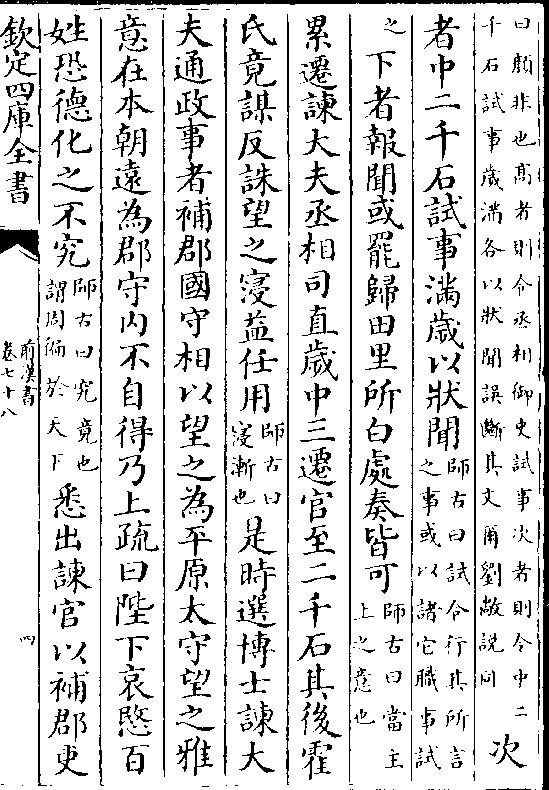 曰顔非也髙者則令丞相御史試事次者則令中二
千石試事歳滿各以狀聞誤斷其文爾劉敞説同
次
者中二千石試事滿歲以狀聞
師古曰試令行其所言
之事或以諸它職事試
之
下者報聞或罷歸田里所白處奏皆可
師古曰當主
上之意也
累遷諫大夫丞相司直歲中三遷官至二千石其後霍
氏竟謀反誅望之寖益任用
師古曰
寖漸也
是時選博士諫大
夫通政事者補郡國守相以望之為平原太守望之雅
意在本朝遠為郡守内不自得乃上疏曰陛下哀愍百
姓恐德化之不究
師古曰究竟也
謂周徧於天下
悉出諫官以補郡吏
欽定四庫全書
前漢書
卷七十八
四